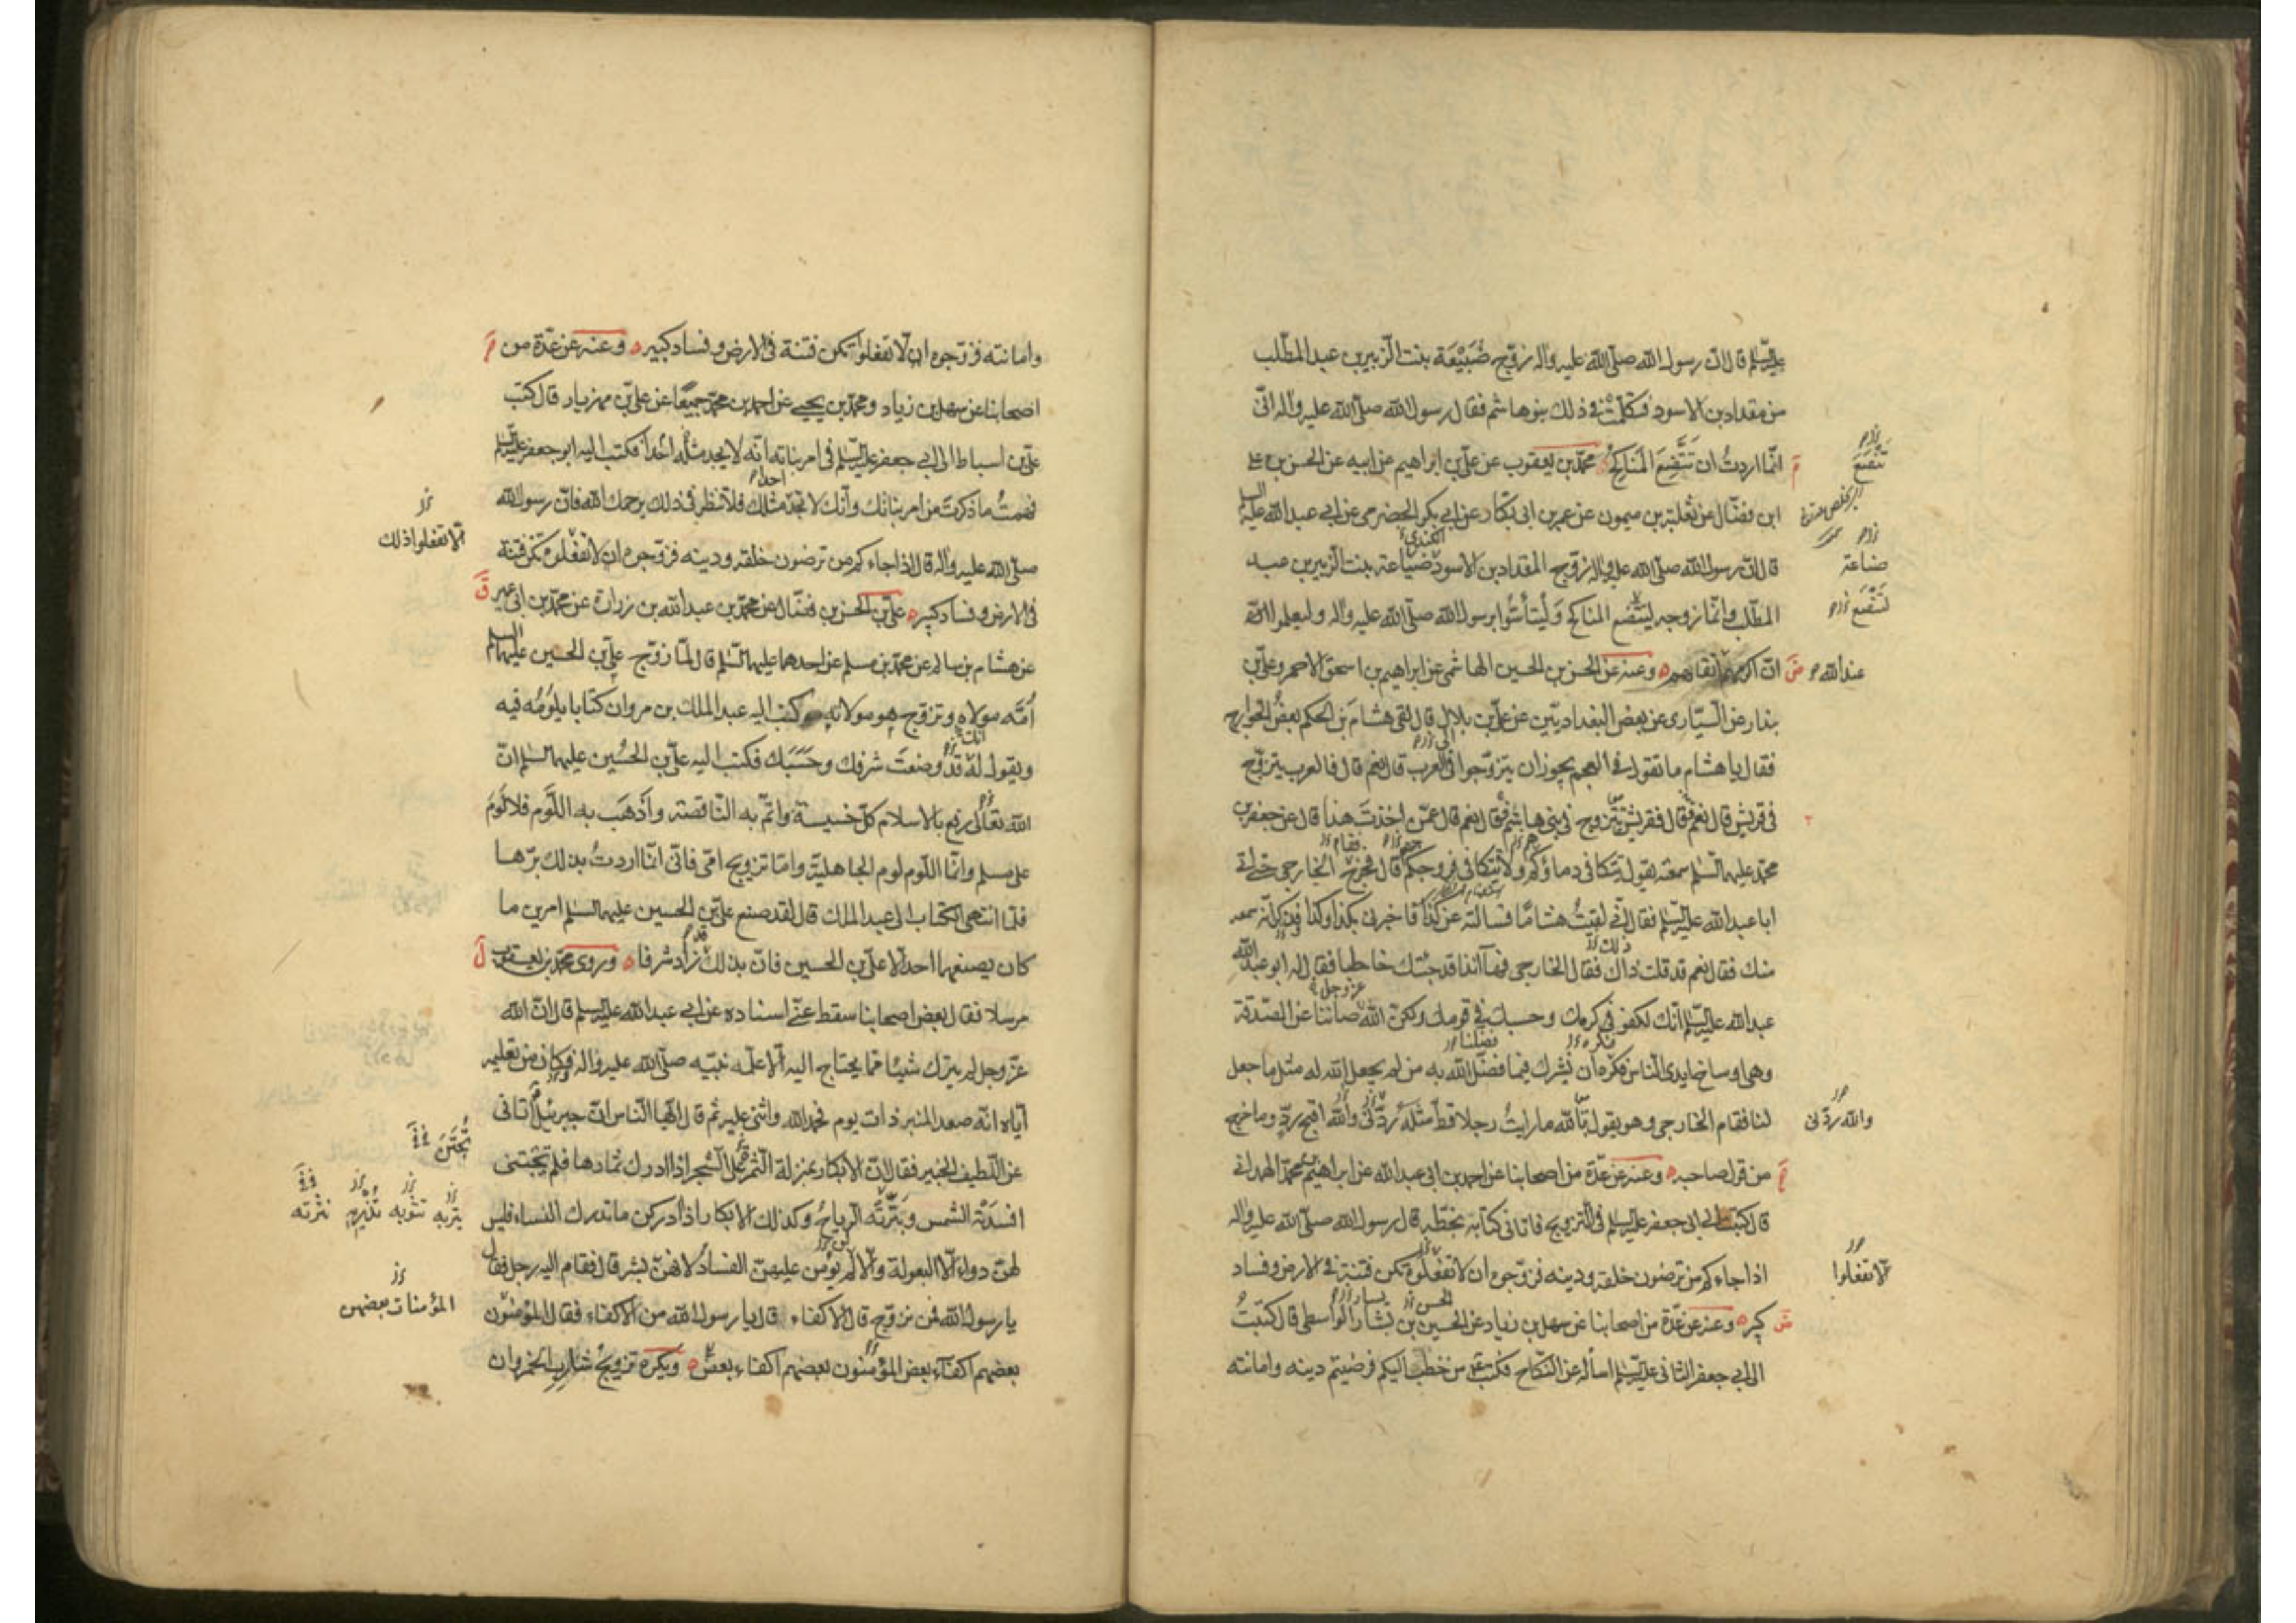 عليه السّلم قال انّ رسول الله صلّى الله عليه واله زوّج ضُبَيْعَة بنت الزّبير بن عبد المطّلب
من مقداد بن الاسود فتكلّمتْ في ذلك بنو هاشم فقال رسول الله صلّى الله عليه واله انّى
انّما اردتُ ان تَتَّضِعَ المَناكِحُ محمّد بن يعقوب عن علىّ بن ابراهيم عن ابيه عن الحسن بن على
ابن فضّال عن ثعلبة بن ميمون عن عمر بن ابى بكّار عن ابى بكر الحضرمى عن ابى عبد الله عليه السلم
قال انّ رسول الله صلّى الله عليه واله زوّج المقداد بن الاسود ضباعة بنت الزّبير بن عبد
المطّلب وانّما زوجه ليتّضع المناكح وَلْيَتأسَّوا برسول الله صلّى الله عليه واله وليعلموا
انّ اكرمهم اتقاهم وعنه عن الحسن بن الحسين الهاشمى عن ابراهيم بن اسحق الاحمر وعلىّ بن
بندار عن السّيّارى عن بعض البغداديّين عن علىّ بن بلال قال لقى هشامَ بن الحكم بعضُ الخوارج
فقال يا هشام ما تقول في العجم يجوز ان يتزوّجوا في العرب قال نعم قال فالعرب يتزوّج
في قريش قال نعم قال فقريش تتزوج في بنى هاشم قال نعم قال عمّن اخذتَ هذا قال عن جعفر بن
محمّد عليهما السّلم سمعته يقول تتكافى دماؤكم ولا تتكافى فروجكم قال فخرج الخارجى حتى اتى
ابا عبد الله عليه السّلم فقال انّى لقيتُ هشامًا فسالته عن كذا فاخبرنى بكذا وكذا وذكر انّه سمعه
منك فقال نعم قد قلت ذاك فقال الخارجى فها انا ذا قد جئتك خاطبا فقال له ابو عبد الله
عبد الله عليه السّلم انّك لكفو في كرمك وحسبك في قومك ولكنّ الله صاننا عن الصّدقة
وهى اوساخ ايدى النّاس فكره ان نُشرك فيما فضّل الله به من لم يجعل الله له مثل ما جعل
لنا فقام الخارجى وهو يقول تالله ما رايتُ رجلا قطّ مثله رَدّنى والله اقبح ردّ وما خرج
من قول صاحبه وعنه عن عدّة من اصحابنا عن احمد بن ابى عبد الله عن ابراهيم بن محمّد الهمدانى
قال كتبت الى ابى جعفر عليه السّلم في التّزويج فاتانى كتابه بخطّه قال رسول الله صلّى الله عليه واله
اذا جاءكم من ترضون خلقه ودينه فزوّجوه ان لا تفعلوه تكن فتنة في الارض وفساد
كبير وعنه عن عدّة من اصحابنا عن سهل بن زياد عن الحسين بن بشّار الواسطى قال كتبتُ
الى ابى جعفر الثانى عليه السّلم اساله عن النّكاح فكتب من خطب اليكم فرضيتم دينه وامانته
تَتَّضِعَ
ضباعة
عند الله
والله ردّنى
الّا تفعلوا
وامانته فزوّجوه ان لا تفعلوا تكن فتنة في الارض وفساد كبير وعنه عن عدّة من
اصحابنا عن سهل بن زياد ومحمّد بن يحيى عن احمد بن محمّد جميعًا عن علىّ بن مهزيار قال كتب
علىّ بن اسباط الى ابى جعفر عليه السّلم في امر بناته انّه لا يجد مثله احدا فكتب اليه ابو جعفر عليه السّلم
فهمتُ ما ذكرتَ من امر بناتك وانّك لا تجد مثلك فلا تنظر في ذلك يرحمك الله فانّ رسول الله
صلّى الله عليه واله قال اذا جاءكم من ترضون خلقه ودينه فزوّجوه ان لا تفعلوه تكن فتنة
في الارض وفساد كبير علىّ بن الحسن بن فضّال عن محمّد بن عبد الله بن زرارة عن محمّد بن ابى عمير
عن هشام بن سالم عن محمّد بن مسلم عن احدهما عليهما السّلم قال لمّا زوّج علىّ بن الحسين عليهما السلم
اُمّه مولاه وتزوّج هو مولاته كتب اليه عبد الملك بن مروان كتابا يلومُه فيه
ويقول له قد وضعتَ شرفك وحَسَبَك فكتب اليه علىّ بن الحُسين عليهما السّلم انّ
الله تعالى رفع بالاسلام كلّ خسيسة واتمّ به النّاقصة واَذهَبَ به اللّوم فلا لَومَ
على مسلم وانّما اللّوم لوم الجاهليّة وامّا تزويج امّى فانّى انّما اردتُ بذلك برّها
فلمّا انتهى الكتاب الى عبد الملك قال لقد صنع علىّ بن الحسين عليهما السّلم امرين ما
كان يصنعهما احد الّا علىّ بن الحسين فانّ بذلك زاد شرفا وروى محمّد بن يعقوب
مرسلا فقال بعض اصحابنا سقط عنّى اسناده عن ابى عبد الله عليه السّلم قال انّ الله
عزّ وجل لم يترك شيئا ممّا يحتاج اليه الّا علّمه نبيّه صلّى الله عليه واله فكان من تعليمه
ايّاه انّه صعد المنبر ذات يوم فحمد الله واثنى عليه ثم قال ايّها النّاس انّ جبرئيل اتانى
عن اللّطيف الخبير فقال انّ الابكار بمنزلة الثّمر على الشّجر اذا ادرك ثمارها فلم تجتنى
افسدَتْه الشمس ونثرته الرّياحُ وكذلك الابكار اذا ادركن ما تدرك النّساء فليس
لهنّ دواء الّا البعولة والّا لم يؤمن عليهنّ الفساد لانّهنّ بشر قال فقام اليه رجل فقال
يا رسول الله فمن نزوّج قال الاكفاء قال يا رسول الله من الاكفاء فقال المؤمنون
بعضهم اكفاء بعض المؤمنون بعضهم اكفاء بعض ويكره تزويجُ شاربِ الخمر وان
الّا تفعلوا ذلك
المؤمنات بعضهن